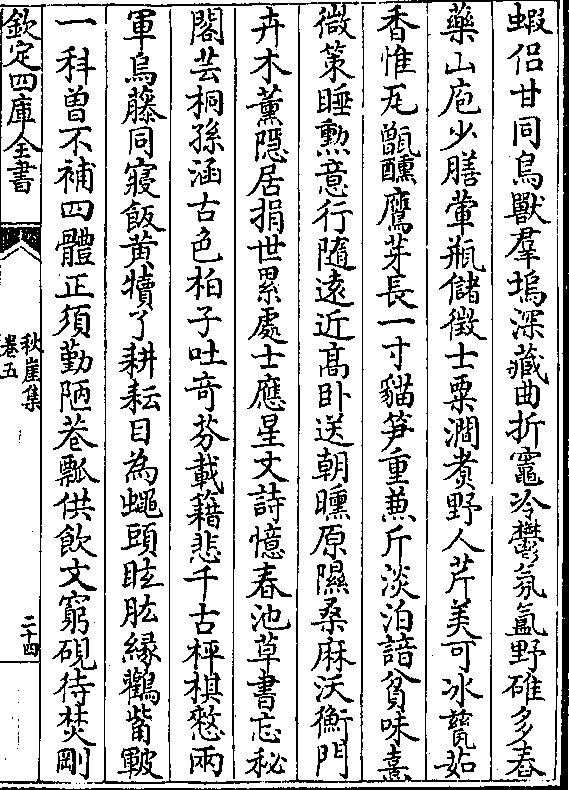 蝦侣甘同鳥獸羣塢深藏曲折竈冷鬱氛氲野碓多舂
藥山庖少膳葷瓶儲徴士粟澗煑野人芹美可冰虀茹
香惟瓦甑醺鷹芽長一寸貓笋重兼斤淡泊諳貧味熹
微策睡勲意行隨逺近髙卧送朝曛原隰桑麻沃衡門
卉木薰隠居捐世累處士應星文詩憶春池草書忘秘
閣芸桐孫涵古色柏子吐竒芬載籍悲千古枰棋憗兩
軍烏藤同寢飯黄犢了耕耘目為蠅頭眩肱縁鸛觜皸
一科曽不補四體正須勤陋巷瓢供飲文窮硯待焚剛
欽定四庫全書
秋崖集
卷五
二十四